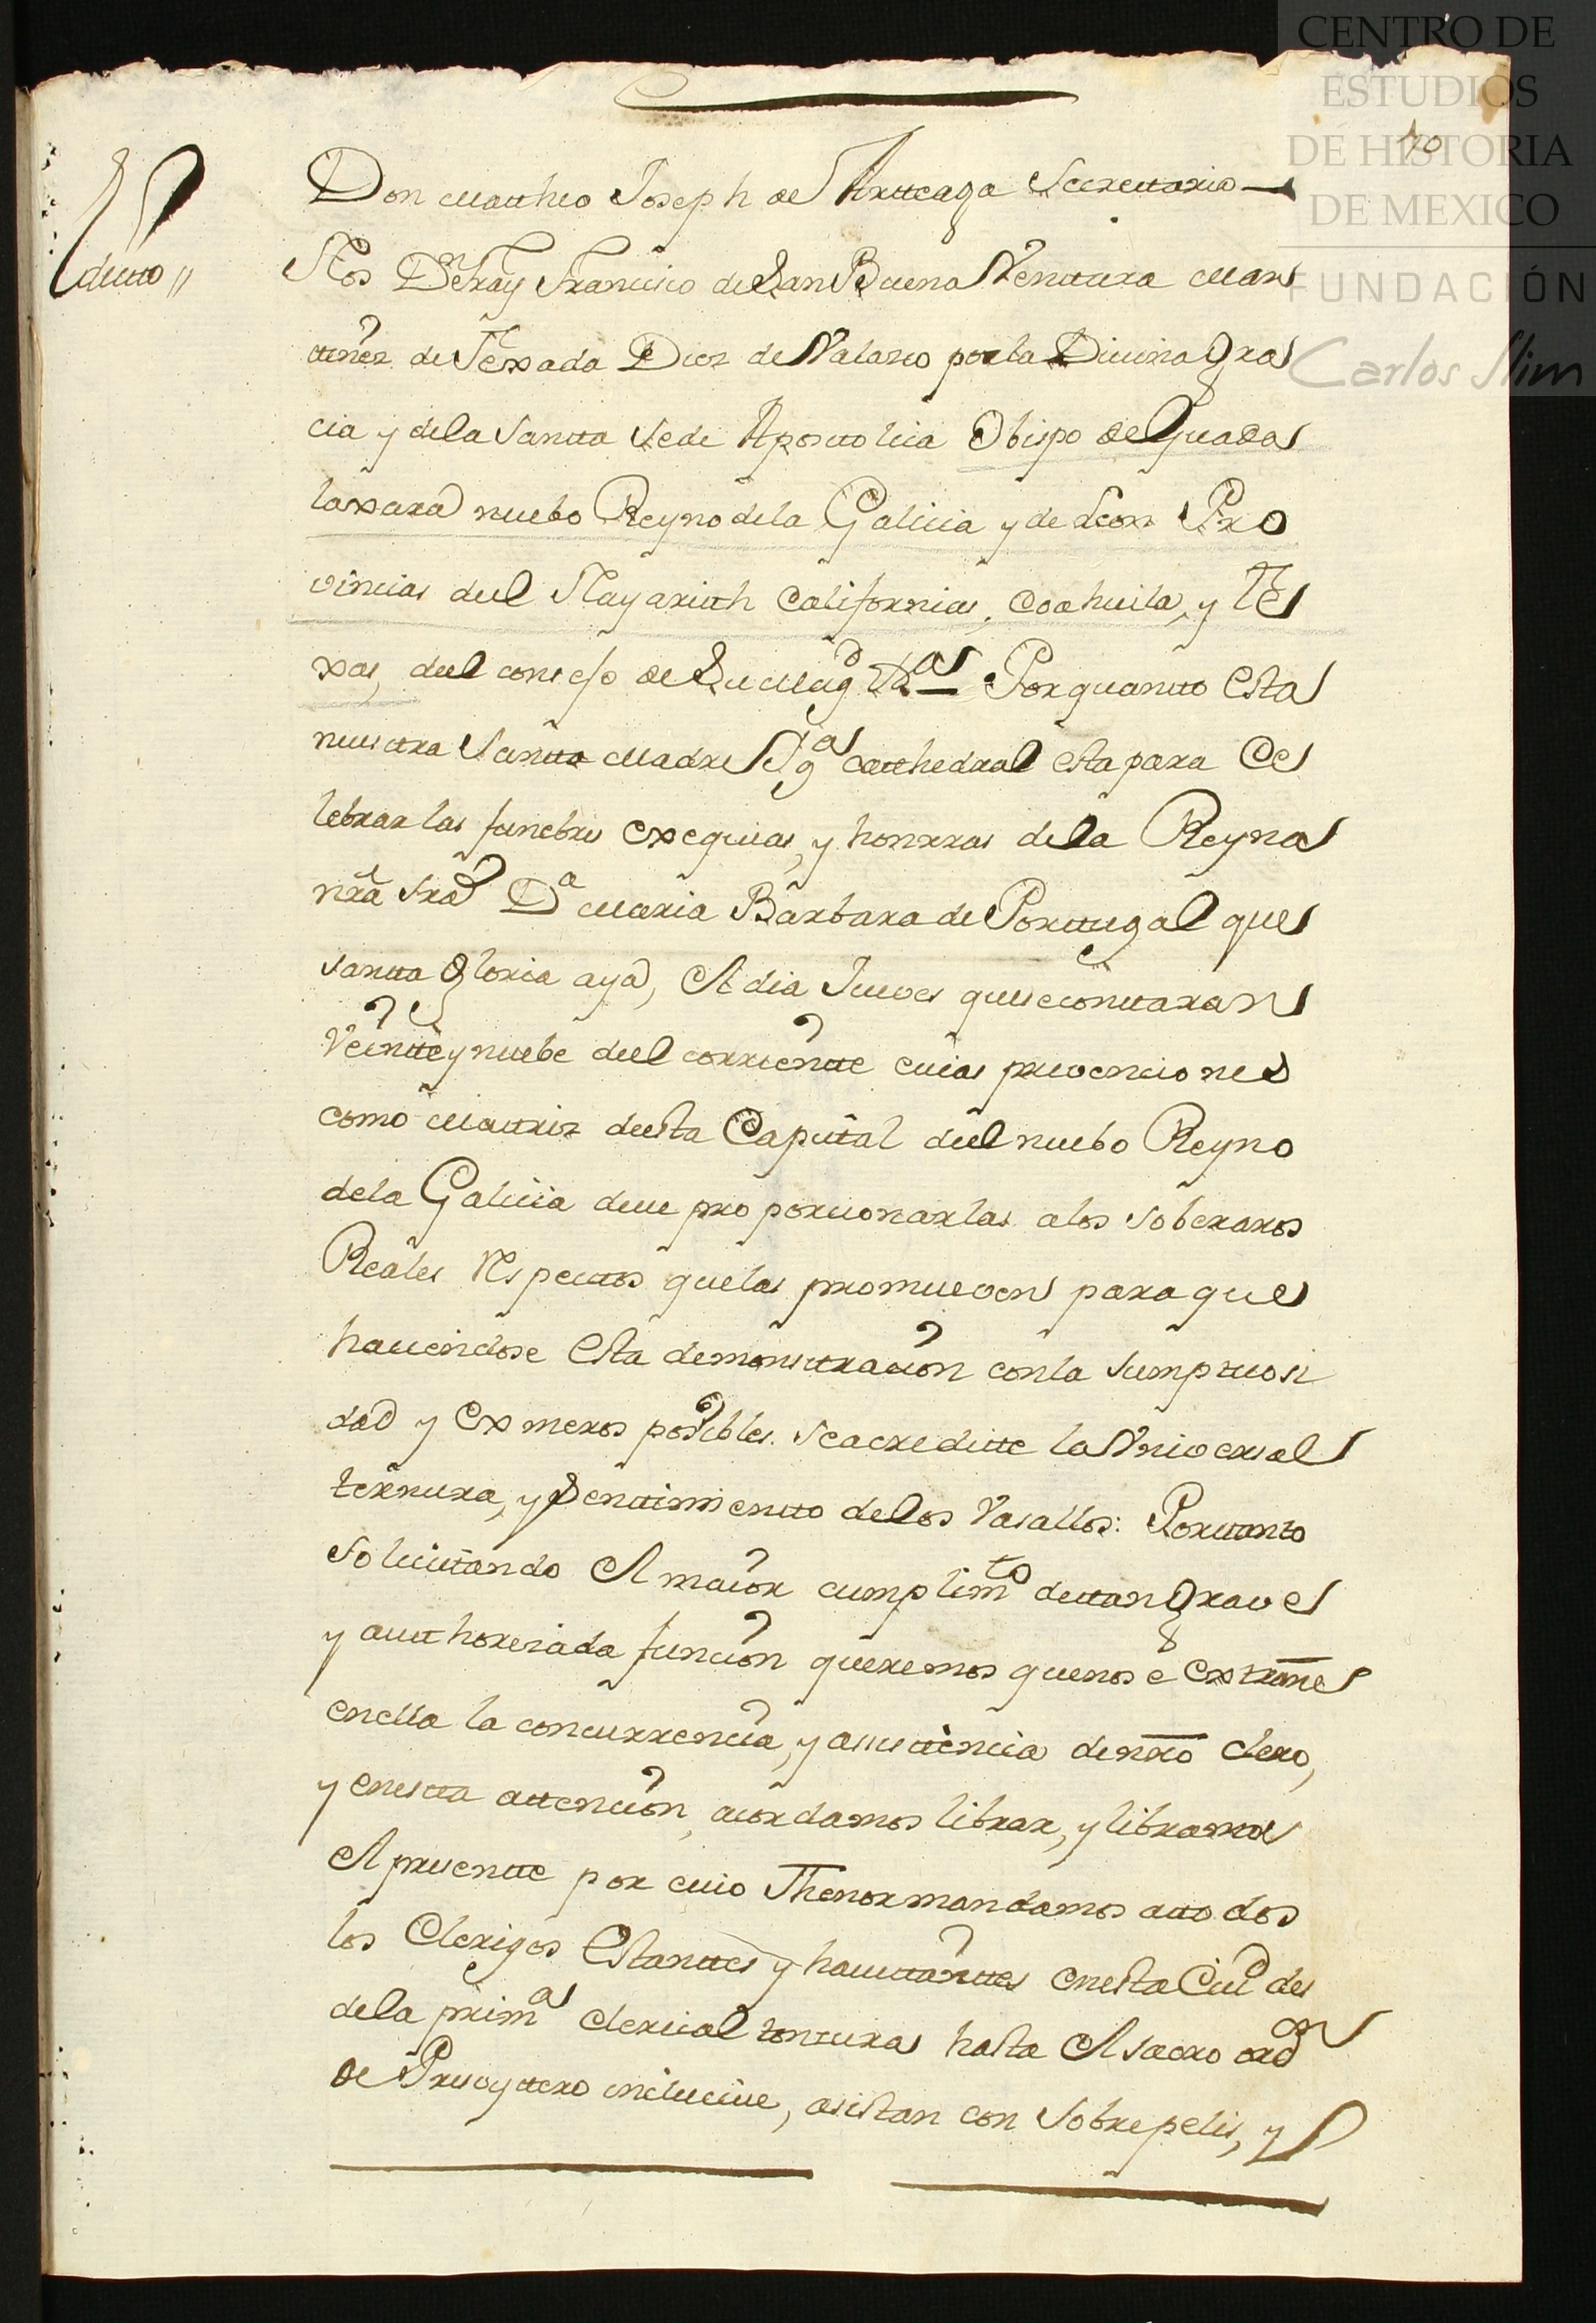 CENTRO DE
ESTUDIOS
DE HISTORIA
DE MEXICO
FUNDACIÓN
Carlos Slim
10
Edicto
Don Matheo Joseph de Artteaga Secrettario
Nos Dn Fray Francisco de San Buena Ventura Mar
tinez de Texada Diez de Velasco por la Divina Gra
cia y de la Santta Sede Aposttolica Obispo de Guada
laxara nuebo Reyno de la Galicia y de Leon Pro
vincias del Nayaritth Californias, Coahuila, y Te
xas, del consejo de Su Magd &as Por quantto esta
nuesttra Santta Madre Yga Catthedral esta para ce
lebrar las funebres exequias, y honrras de la Reyna
nra sra Da Maria Barbara de Porttugal que
santta Gloria aya, el dia Jueves que se conttaran
Veintte y nuebe del corrientte cuias prevenciones
como Mattriz de esta Capital del nuebo Reyno
de la Galicia deve proporcionarlas a los soberanos
Reales Respecttos que las promueven para que
haciendose esta demonsttracion con la sumptuosi
dad y exmeros posibles se acreditte la Universal
ternura, y Senttimientto de los Vasallos: Por tanto
solicittando el maior cumplimto de tan Grave
y autthorizada funcion queremos que no se extrañe
en ella la concurrencia, y assisttencia de nro Clero,
y en estta attencion, acordamos librar, y libramos
el presentte por cuio Thenor mandamos a ttodos
los Clerigos Estanttes y havittanttes en esta Ciud de
de la prima clerical tonsura hasta el sacro ordn
de Presvyttero inclucive, asistan con Sobrepelis, y